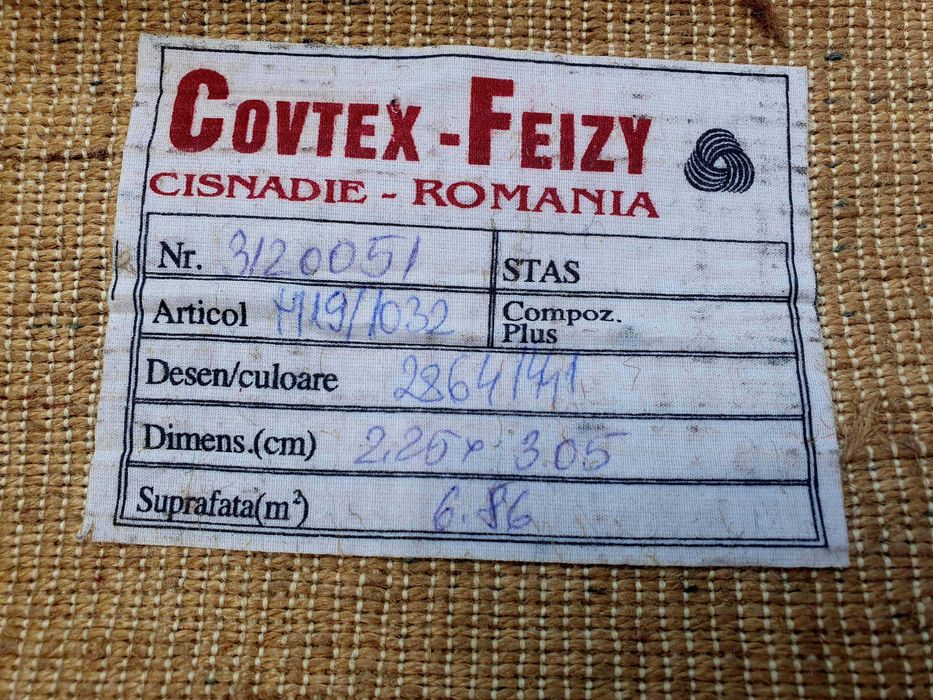 COVTEX - FEIZY
CISNADIE - ROMANIA
Nr. 3120051
STAS
Articol M19/1032
Compoz.
Plus
Desen/culoare
Dimens.(cm) 2.25 x 3.05
Suprafata(m²) 6.86